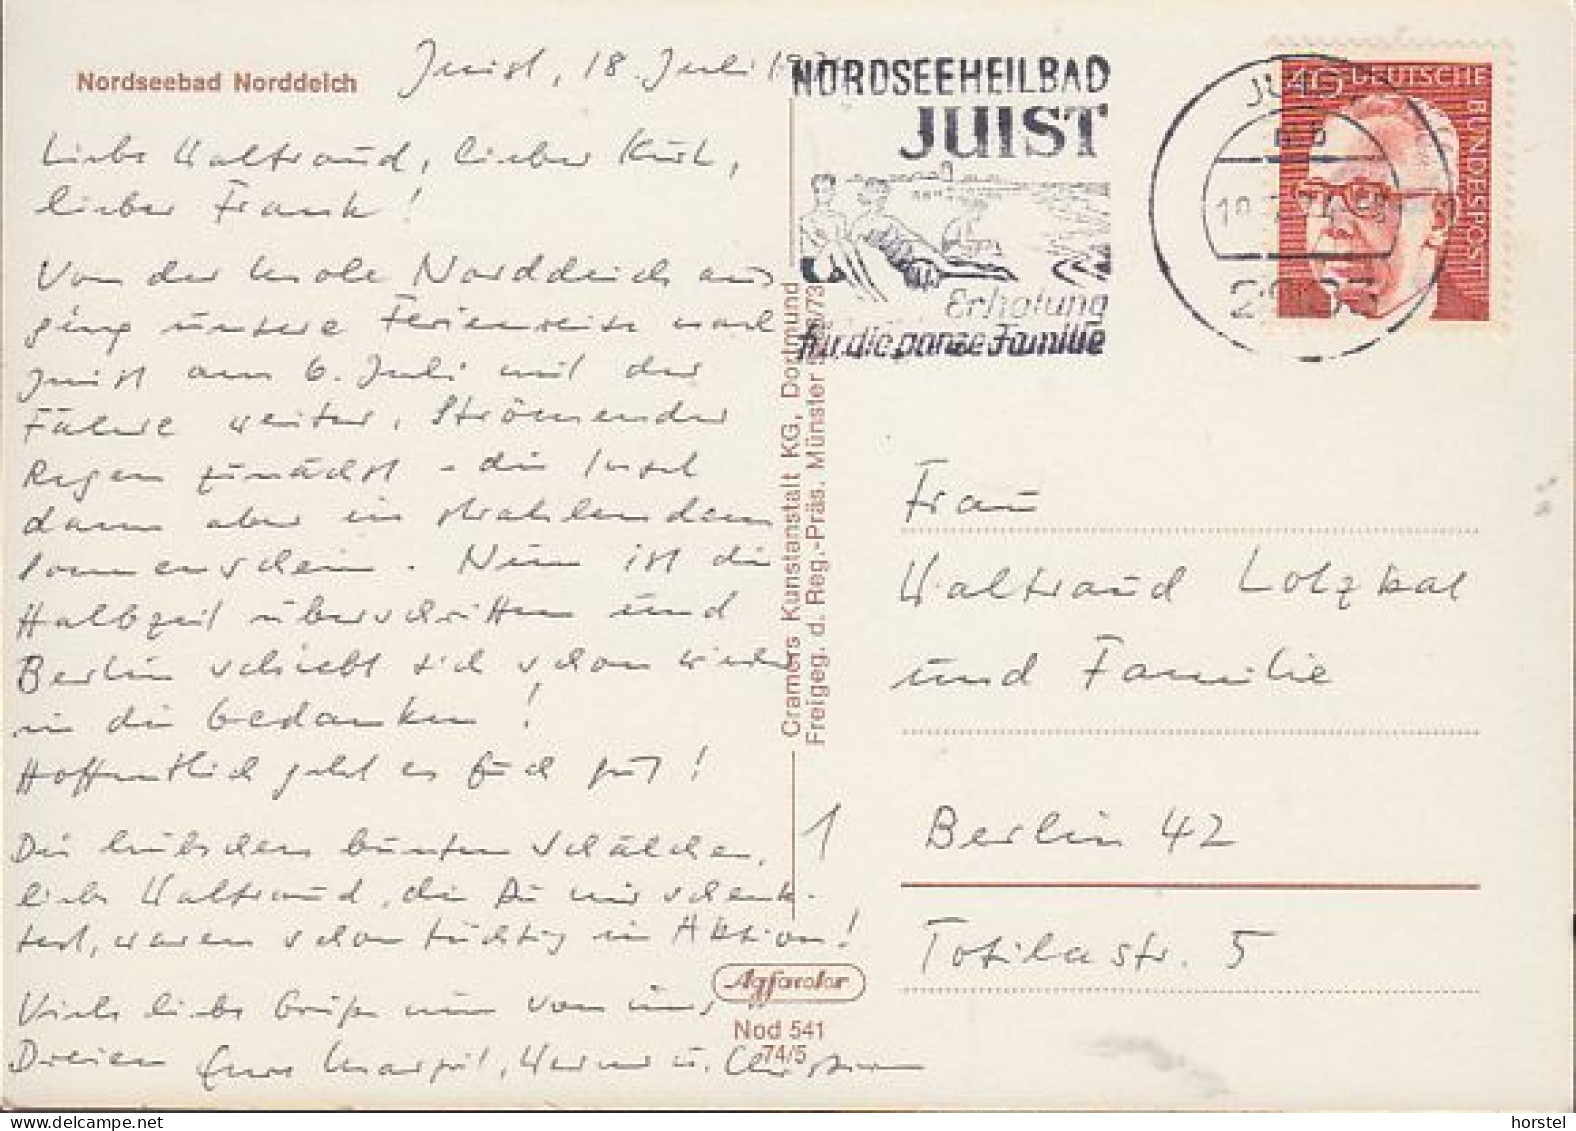 Nordseebad Norddeich
Juist, 18. Juli
Liebe Waltraud, lieber Kurt,
lieber Frank!
Von der Mole Norddeich aus
ging unsere Ferienreise nach
Juist am 6. Juli mit der
Fähre weiter. Strömender
Regen zunächst - die Insel
dann aber in strahlendem
Sonnenschein. Nun ist die
Halbzeit überschritten und
Berlin schiebt sich schon wieder
in die Gedanken!
Hoffentlich geht es Euch gut!
Die hübschen bunten Schälchen,
liebe Waltraud, die Du mir schenk-
test, waren schon tüchtig in Aktion!
Viele liebe Grüße nun von uns
Dreien Eure Margit, Werner u. Christian
Cramers Kunstanstalt KG, Dortmund
Freigeg. d. Reg.-Präs. Münster
Agfacolor
Nod 541
74/5
NORDSEEHEILBAD
JUIST
Erholung
für die ganze Familie
DEUTSCHE
BUNDESPOST
Frau
Waltraud Lotzkat
und Familie
1
Berlin 42
Totilastr. 5
horstel